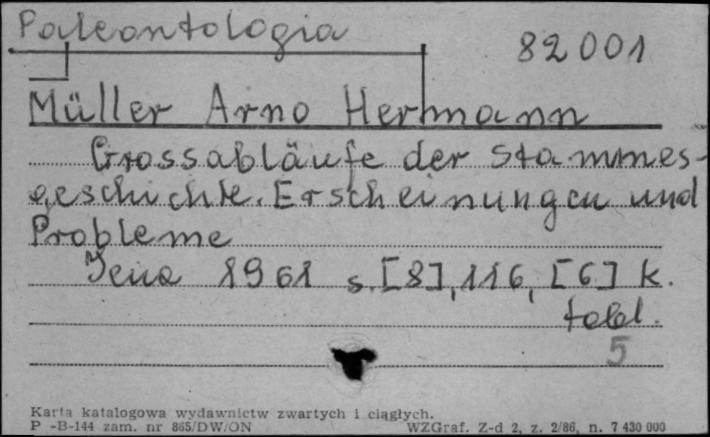 Paleontologia
82001
Müller Arno Hermann
Grossabläufe der Stammes-
geschichte. Erscheinungen und
Probleme
Jena 1961 s. [8], 116, [6] k.
tabl.
5
Karta katalogowa wydawnictw zwartych i ciągłych.
P -B-144 zam. nr 865/DW/ON WZGraf. Z-d 2, z. 2/86, n. 7 430 000